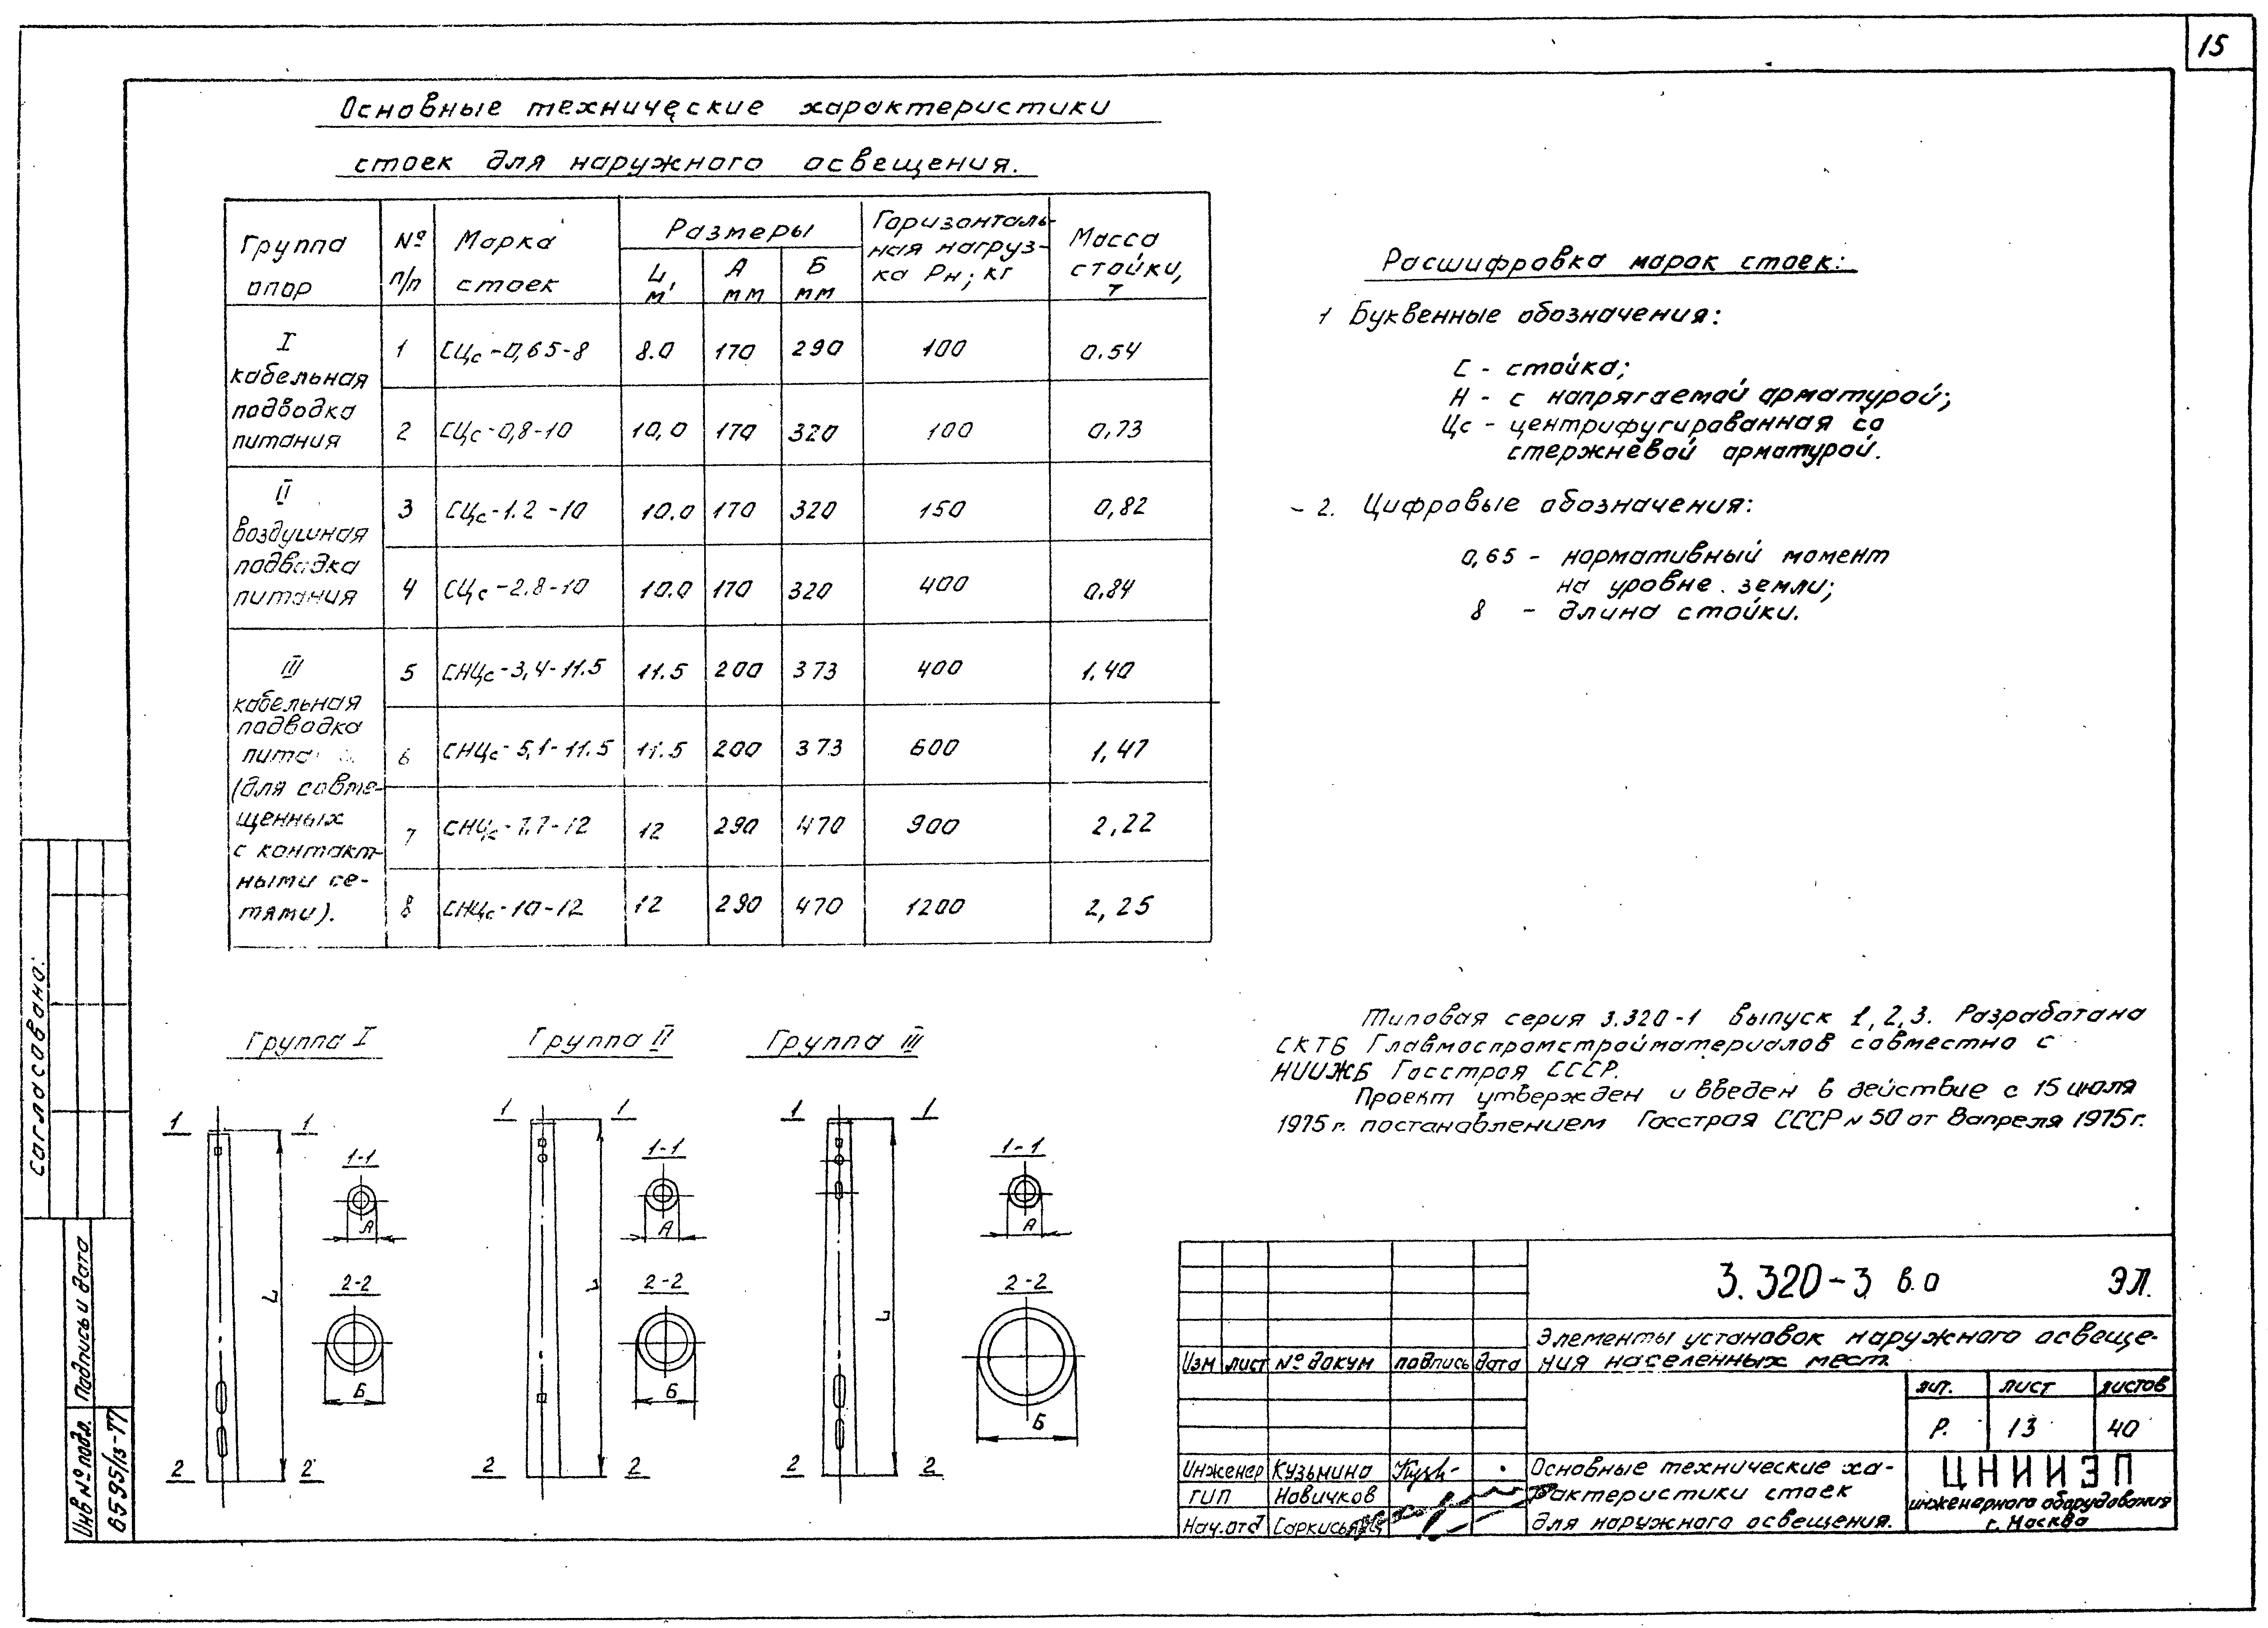 15
Основные технические характеристики
стоек для наружного освещения.
Группа опор
№ п/п
Марка стоек
Размеры
L, м
А мм
Б мм
Горизонталь-
ная нагруз-
ка Рн; кг
Масса
стойки,
т
I
кабельная
подводка
питания
1 СЦс-0,65-8 8.0 170 290 100 0.54
2 СЦс-0,8-10 10,0 170 320 100 0,73
II
воздушная
подводка
питания
3 СЦс-1.2-10 10.0 170 320 150 0,82
4 СЦс-2.8-10 10.0 170 320 400 0.84
III
кабельная
подводка
пита
(для совме-
щенных
с контакт-
ными се-
тями).
5 СНЦс-3,4-11.5 11.5 200 373 400 1.40
6 СНЦс-5,1-11.5 11.5 200 373 600 1,47
7 СНЦс-7.7-12 12 290 470 900 2,22
8 СНЦс-10-12 12 290 470 1200 2,25
Расшифровка марок стоек:
1 Буквенные обозначения:
С - стойка;
Н - с напрягаемой арматурой;
Цс - центрифугированная со
стержневой арматурой.
2. Цифровые обозначения:
0,65 - нормативный момент
на уровне земли;
8 - длина стойки.
Группа I
Группа II
Группа III
1 1
1-1
А
2-2
Б
L
2 2
1 1
1-1
А
2-2
Б
L
2 2
1 1
1-1
А
2-2
Б
L
2 2
Типовая серия 3.320-1 выпуск 1,2,3. Разработана
СКТБ Главмоспромстройматериалов совместно с
НИИЖБ Госстроя СССР.
Проект утвержден и введен в действие с 15 июля
1975г. постановлением Госстроя СССР №50 от 8 апреля 1975г.
3.320-3 в.0 ЭЛ.
Элементы установок наружного освеще-
ния населенных мест.
Изм лист № докум подпись дата
лит. лист листов
Р. 13 40
Инженер Кузьмина
ГИП Новичков
Нач.отд
Основные технические ха-
рактеристики стоек
для наружного освещения.
ЦНИИЭП
инженерного оборудования
г. Москва
Согласовано:
Подпись и дата
Инв № подл.
6595/13-77